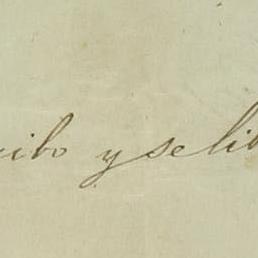 cibo y se lib